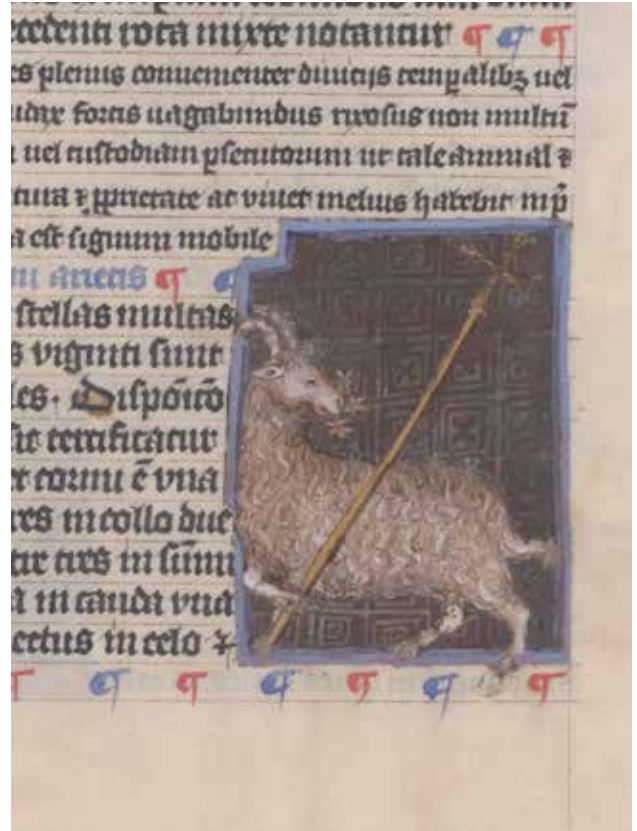 cedenti rota mixte notantur
es plenus conuenienter diuicijs temp alibꝫ uel
udax fortis uagabundus rixosus non multū
uel custodiam ꝑsecutorum ut tale animal ⁊
tura ⁊ ꝓprietate ac viuet melius habebit
a est signum mobile
m arietis
stellas multas
s viginti sunt
les. Disposicō
sic certificatur
et cornu ē vna
res in collo due
tur tres in sūmi
a in cauda vna
ectus in celo ⁊